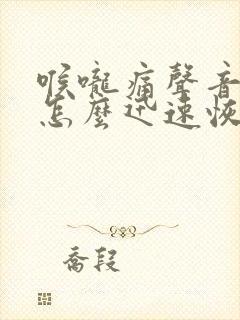 喉嚨痛聲音
怎麼迅速恢
喬段